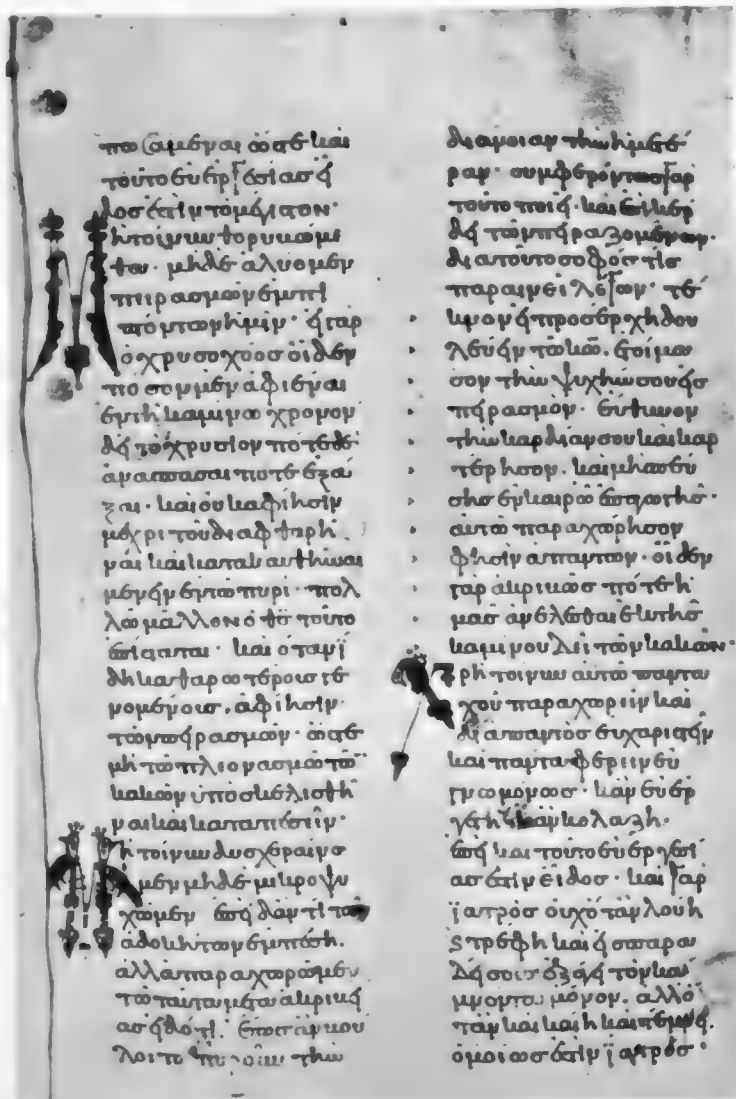 πωσάμεναι ὥστε καὶ
τοῦτο εὐεργεσίας εἶ
δος ἐστὶν τὸ μέγιστον·
Μὴ τοίνυν θορυβώμε
θα· μηδὲ ἀλύομεν
πειρασμῶν ἐμπι
πτόντων ἡμῖν· εἰ γὰρ
ὁ χρυσοχόος οἶδεν
πόσον μὲν ἀφιέναι
ἐν τῇ καμίνω χρόνον
δεῖ τὸ χρυσίον πότε δὲ
ἀνασπάσαι ποτὲ ἐξά
ξαι· καὶ οὐκ ἀφίησιν
μέχρι τοῦ διαφθαρῆ
ναι καὶ κατακαυθῆναι
μένειν ἐν τῶ πυρί· πολ
λῶ μᾶλλον ὁ θς τοῦτο
ἐπίσταται· καὶ ὅταν ἴ
δη καθαρωτέρους γε
νομένους, ἀφίησιν
τῶν πειρασμῶν· ὥστε
μὴ τῶ πλεονασμῶ τῶ
κακῶν ὑποσκελισθῆ
ναι καὶ καταπεσεῖν·
Μὴ τοίνυν δυσχεραίνω
μεν μηδὲ μικροψυ
χῶμεν ἐπειδάν τι τῶν
ἀδοκήτων ἐμπέση.
ἀλλὰ παραχωρῶμεν
τῶ ταῦτα μετὰ ἀκριβεί
ας εἰδότι. ἕως ἂν βού
λοιτο πυροῦν τὴν
διάνοιαν τὴν ἡμετέ
ραν· συμφερόντως γὰρ
τοῦτο ποιεῖ· καὶ ἐπὶ κέρ
δει τῶν πειραζομένων·
διὰ τοῦτο σοφός τις
παραινεῖ λέγων· τέ
κνον εἰ προσέρχη δου
λεύειν τῶ κω. ἑτοίμα
σον τὴν ψυχήν σου εἰς
πειρασμόν· εὔθυνον
τὴν καρδίαν σου καὶ καρ
τέρησον. καὶ μὴ σπεύ
σης ἐν καιρῶ ἐπαγωγῆς·
αὐτῶ παραχώρησον
φησὶν ἁπάντων· οἶδεν
γὰρ ἀκριβῶς πότε ἡ
μᾶς ἀνελέσθαι ἐκ τῆς
καμίνου τῶν κακῶν·
Χρὴ τοίνυν αὐτῶ παντα
χοῦ παραχωρεῖν καὶ
διαπαντὸς εὐχαριστεῖν
καὶ πάντα φέρειν εὐ
γνωμόνως· κἂν εὐερ
γετῆ κἂν κολάζη·
ἐπεὶ καὶ τοῦτο εὐεργεσί
ας ἐστὶν εἶδος· καὶ γὰρ
ἰατρὸς οὐχ ὅταν λούη
τρέφη καὶ εἰς παρα
δείσους ἐξάγει τὸν κά
μνοντα μόνον. ἀλλ' ὅ
ταν καὶ καίη καὶ τέμνει.
ὁμοίως ἐστὶν ἰατρός·